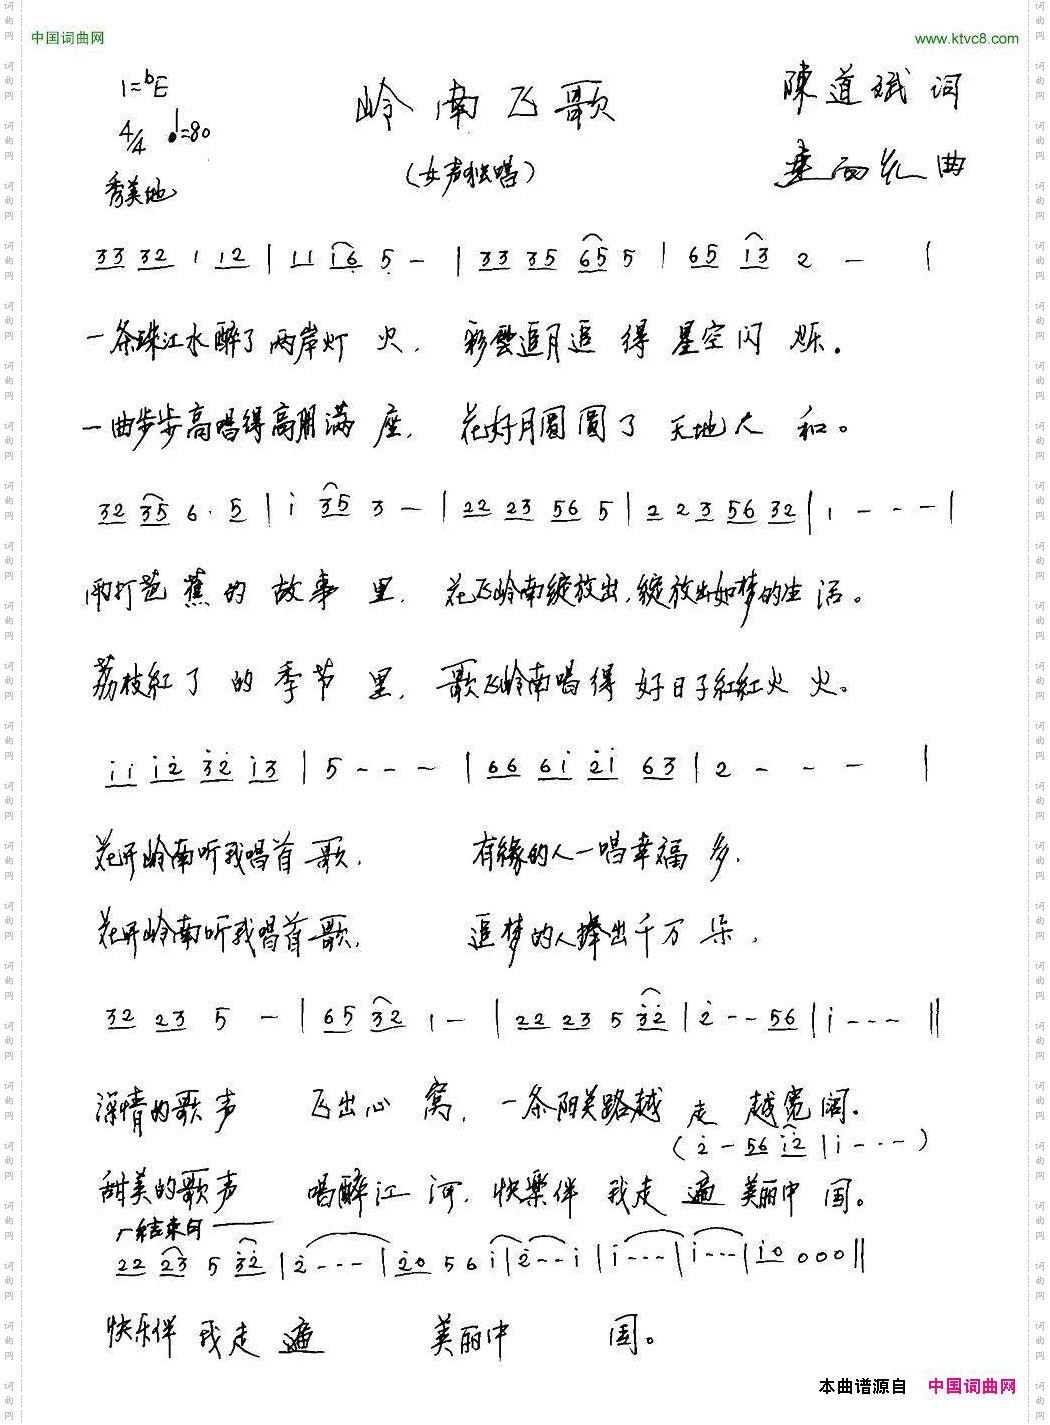 中国词曲网
www.ktvc8.com
1=bE
岭南飞歌
陳道斌 词
4/4 ♩=80
(女声独唱)
曲
秀美地
33 32 1 12 | 11 i6 5 - | 33 35 65 5 | 65 i3 2 - |
一条珠江水醉了两岸灯火, 彩雲追月追得星空闪烁。
一曲步步高唱得高朋满座, 花好月圆圆了天地人和。
32 35 6· 5 | i 35 3 - | 22 23 56 5 | 2 2 3 56 32 | 1 - - - |
雨打芭蕉的故事里, 花飞岭南绽放出,绽放出如梦的生活。
荔枝紅了的季节里, 歌飞岭南唱得好日子紅紅火火。
ii i2 32 i3 | 5 - - - | 66 6i 2i 63 | 2 - - - |
花开岭南听我唱首歌, 有缘的人一唱幸福多,
花开岭南听我唱首歌, 追梦的人捧出千万朵,
32 23 5 - | 65 32 1 - | 22 23 5 32 | 2 - - 56 | i - - - ||
深情的歌声 飞出心窝, 一条阳关路越走越宽阔。
(2 - 56 i2 | i - - -)
甜美的歌声 唱醉江河, 快樂伴我走遍美丽中国。
结束句
22 23 5 32 | 2 - - - | 20 5 6 i | 2 - - i | i - - - | i - - - | i0 0 0 0 ||
快乐伴我走遍 美丽中国。
本曲谱源自 中国词曲网